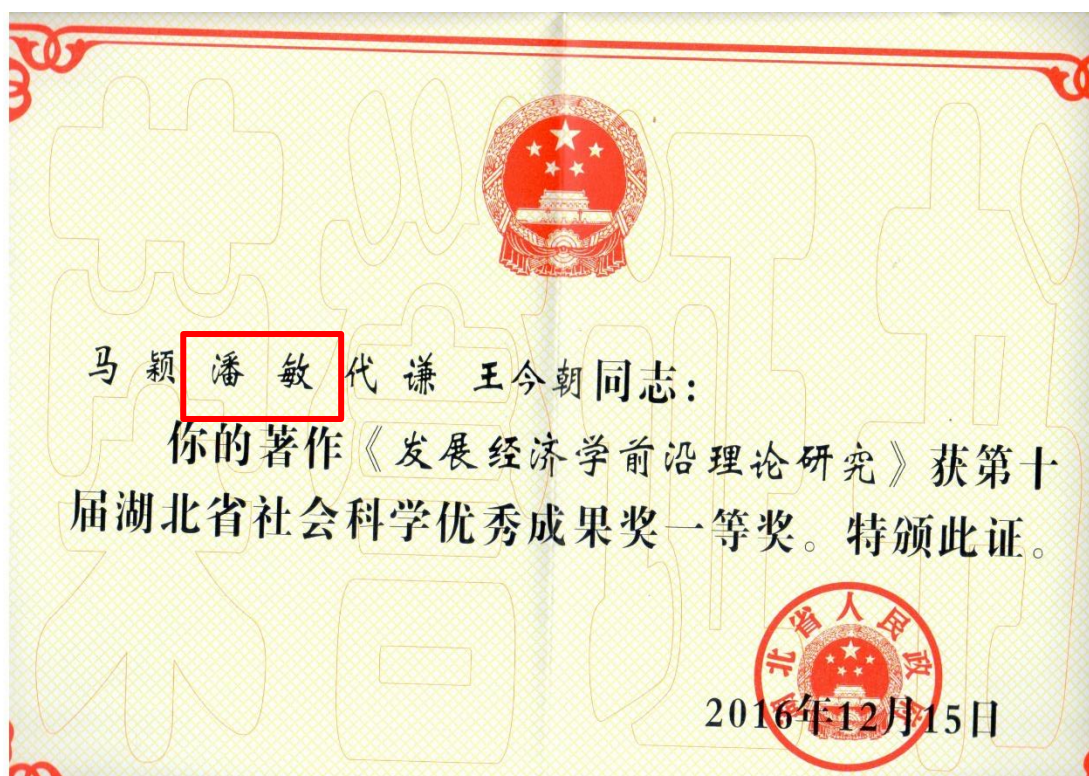 马颖 潘敏 代谦 王今朝同志:
你的著作《发展经济学前沿理论研究》获第十
届湖北省社会科学优秀成果奖一等奖。特颁此证。
湖北省人民政府
2016年12月15日